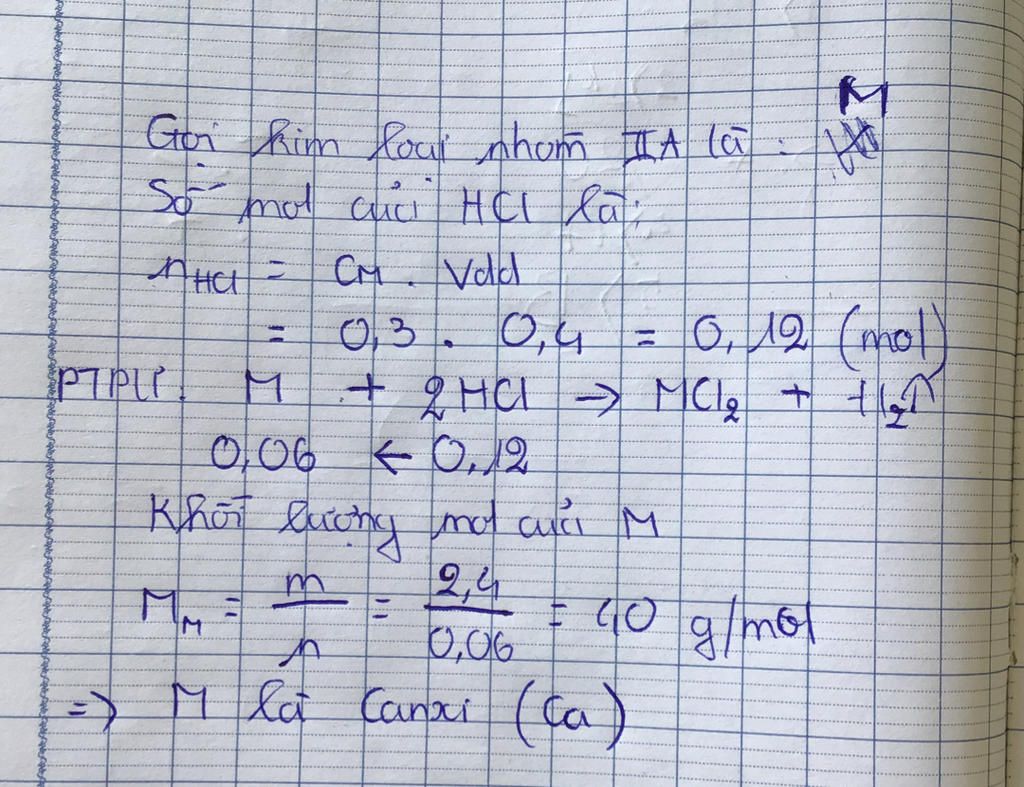 Gọi kim loại nhóm IIA là : M
Số mol của HCl là:
nHCl = CM . Vdd
= 0,3 . 0,4 = 0,12 (mol)
PTPƯ: M + 2HCl → MCl₂ + H₂↑
0,06 ← 0,12
Khối lượng mol của M
Mᴍ = m/n = 2,4/0,06 = 40 g/mol
=> M là Canxi (Ca)